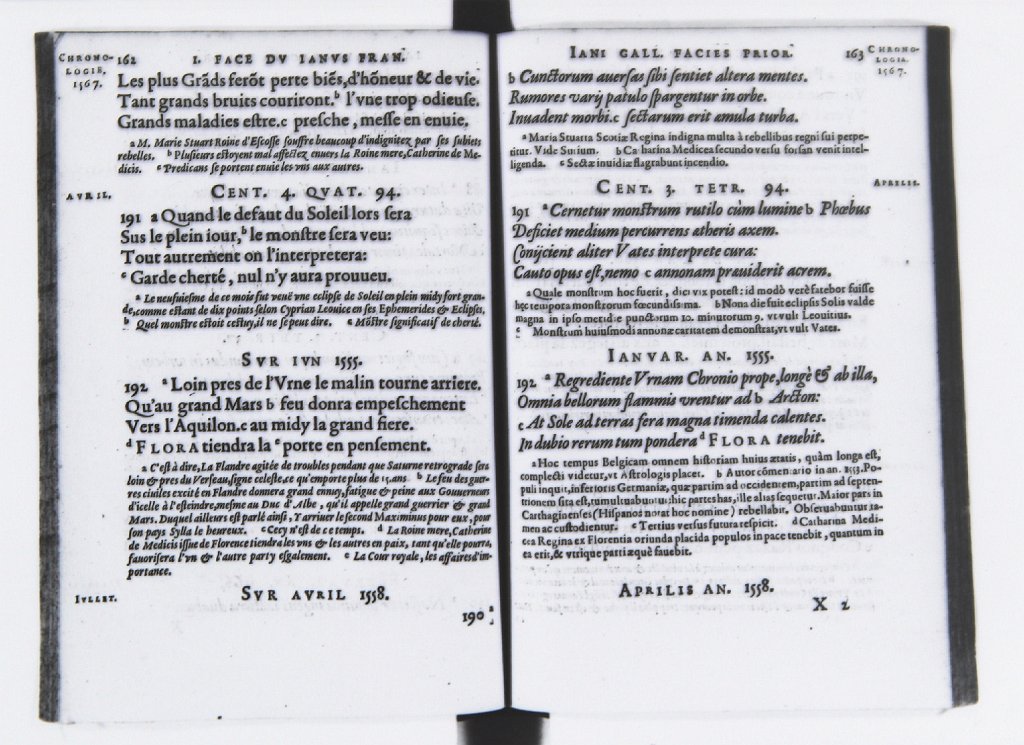 CHRONO-
LOGIE.
1567.
162 I. FACE DV IANVS FRAN.
Les plus Grãds ferõt perte biẽs,d'hõneur & de vie.
Tant grands bruits couriront.ᵇ l'vne trop odieuſe.
Grands maladies eſtre.c preſche, meſſe en enuie.
a M. Marie Stuart Roine d'Eſcoſſe ſouffre beaucoup d'indignitez par ſes ſubiets
rebelles. ᵇ Pluſieurs eſtoyent mal affectez enuers la Roine mere,Catherine de Me-
dicis. ᶜ Predicans ſe portent enuie les vns aux autres.
AVRIL.
CENT. 4. QVAT. 94.
191 a Quand le defaut du Soleil lors ſera
Sus le plein iour,ᵇ le monſtre ſera veu:
Tout autrement on l'interpretera:
ᶜ Garde cherté, nul n'y aura prouueu.
a Le neufuieſme de ce mois fut veuë vne eclipſe de Soleil en plein midy fort gran-
de,comme eſtant de dix points ſelon Cyprian Leouice en ſes Ephemerides & Eclipſes,
ᵇ Quel monſtre eſtoit ceſtuy,il ne ſe peut dire. ᶜ Mõſtre ſignificatif de cherté.
SVR IVN 1555.
192 ᵃ Loin pres de l'Vrne le malin tourne arriere,
Qu'au grand Mars b feu donra empeſchement
Vers l'Aquilon.c au midy la grand fiere.
ᵈ FLORA tiendra la ᵉ porte en penſement.
a C'eſt à dire,La Flandre agitée de troubles pendant que Saturne retrograde ſera
loin & pres du Verſeau,ſigne celeſte,ce qu'emporte plus de 15.ans. ᵇ Le feu des guer-
res ciuiles excité en Flandre donnera grand ennuy,fatigue & peine aux Gouuerneurs
d'icelle à l'eſteindre,meſme au Duc d'Albe, qu'il appelle grand guerrier & grand
Mars. Duquel ailleurs eſt parlé ainſi, Y arriuer le ſecond Maximinus pour eux, pour
ſon pays Sylla le heureux. ᶜ Cecy n'eſt de ce temps. ᵈ La Roine mere, Catherine
de Medicis iſſue de Florence tiendra les vns & les autres en paix, tant qu'elle pourra,
fauoriſera l'vn & l'autre party eſgalement. ᵉ La Cour royale, les affaires d'im-
portance.
IVLLET.
SVR AVRIL 1558.
190
IANI GALL. FACIES PRIOR. 163
CHRONO-
LOGIA.
1567.
b Cunctorum auerſas ſibi ſentiet altera mentes.
Rumores varij patulo ſpargentur in orbe.
Inuadent morbi.c ſectarum erit æmula turba.
ᵃ Maria Stuarta Scotiæ Regina indigna multa à rebellibus regni ſui perpe-
titur. Vide Surium. b Catharina Medicea ſecundo verſu forſan venit intel-
ligenda. ᶜ Sectæ inuidiæ flagrabunt incendio.
CENT. 3. TETR. 94.
APRILIS.
191 ᵃ Cernetur monſtrum rutilo cùm lumine b Phœbus
Deficiet medium percurrens ætheris axem.
Conijcient aliter Vates interprete cura:
Cauto opus eſt,nemo c annonam præuiderit acrem.
a Quale monſtrum hoc fuerit, dici vix poteſt: id modò verè fatebor fuiſſe
hęc tempora monſtrorum fœcundiſsima. b Nona die fuit eclipſis Solis valde
magna in ipſo meridie punctorum 10. minutorum 9. vt vult Leouitius.
c Monſtrum huiuſmodi annonæ caritatem demonſtrat,vt vult Vates.
IANVAR. AN. 1555.
192 ᵃ Regrediente Vrnam Chronio prope,longè & ab illa,
Omnia bellorum flammis vrentur ad b Arcton:
c At Sole ad terras fera magna timenda calentes.
In dubio rerum tum pondera ᵈ FLORA tenebit.
a Hoc tempus Belgicam omnem hiſtoriam huius ætatis, quàm longa eſt,
complecti videtur,vt Aſtrologis placet. b Autor cõmentario in an. 1553. Po-
puli inquit,inferioris Germaniæ, quæ partim ad occidentem,partim ad ſepten-
trionem ſita eſt,tumultuabuntur:hic partes has,ille alias ſequetur. Maior pars in
Carthaginenſes (Hiſpanos notat hoc nomine) rebellabit. Obſeruabuntur ta-
men ac cuſtodientur. ᶜ Tertius verſus futura reſpicit. d Catharina Medi-
cea Regina ex Florentia oriunda placida populos in pace tenebit, quantum in
ea erit,& vtrique parti æquè fauebit.
APRILIS AN. 1558.
X 2